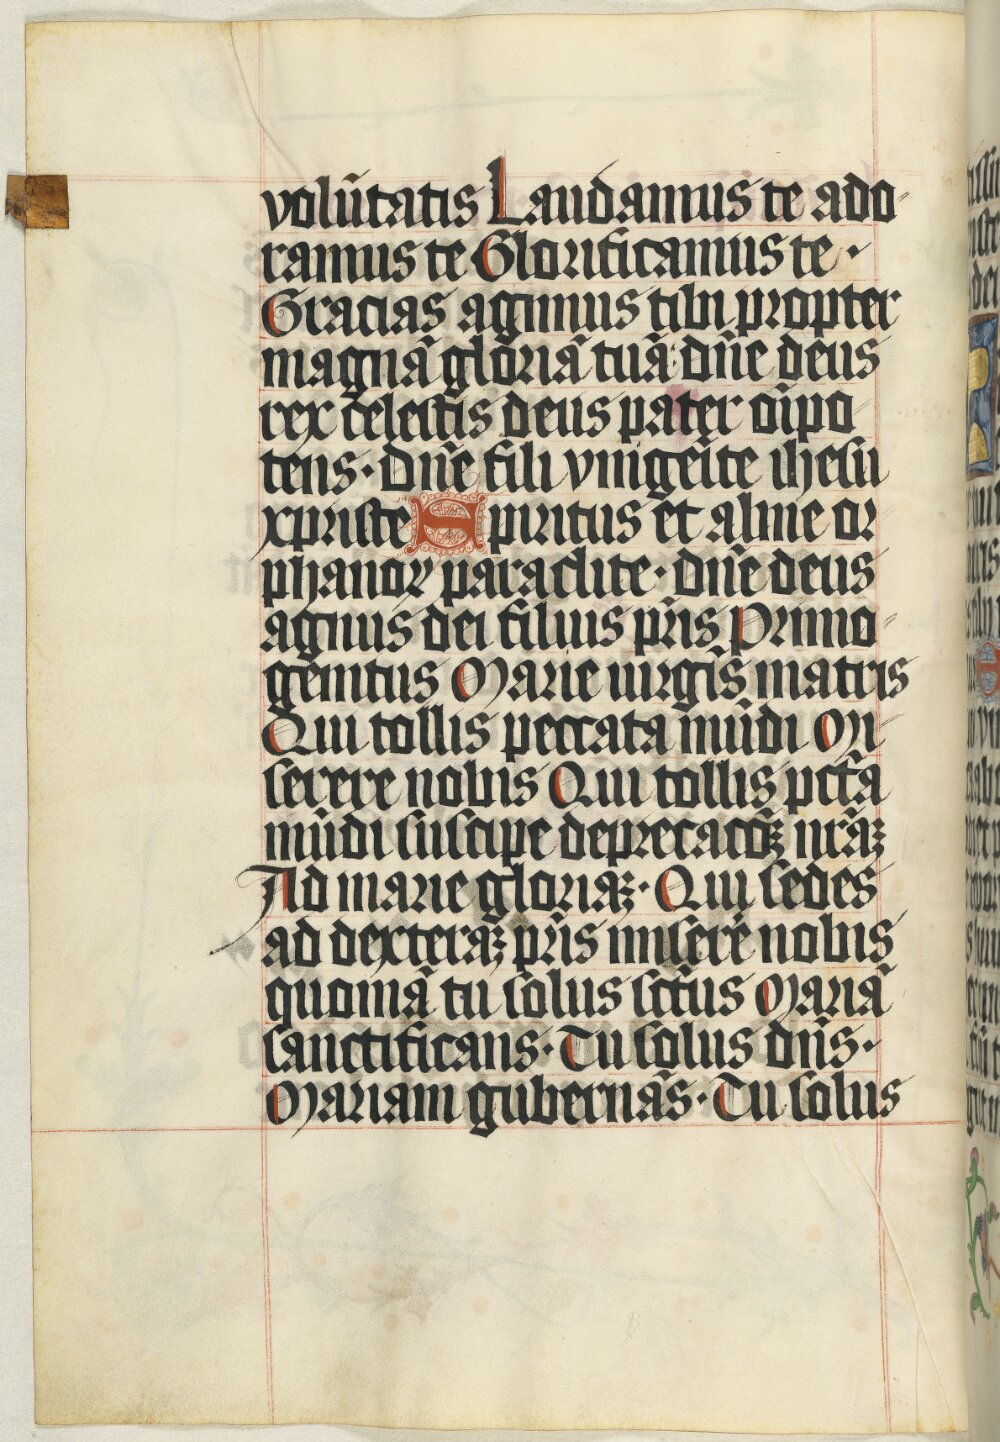 volūtatis Laudamus te ado-
ramus te Glorificamus te ·
Gracias agimus tibi propter
magnā gloriā tuā· dn̄e deus
rex celestis deus pater oīpo
tens · Dn̄e fili vnigeīte ihesu
xpriste Spiritus et alme or
phanoꝝ paraclite · Dn̄e deus
agnus dei filius pr̄is Primo-
genitus Marie uirgīs matris
Qui tollis peccata mūdi Mi-
serere nobis Qui tollis pct̄a
mūdi suscipe deprecacōꝫ nr̄aꝫ
Ad marie gloriaꝫ · Qui sedes
ad dexteraꝫ pr̄is miserē nobis
quoniā tu solus sct̄us Mariā
sanctificans · Tu solus dn̄s ·
Mariam gubernās · Tu solus